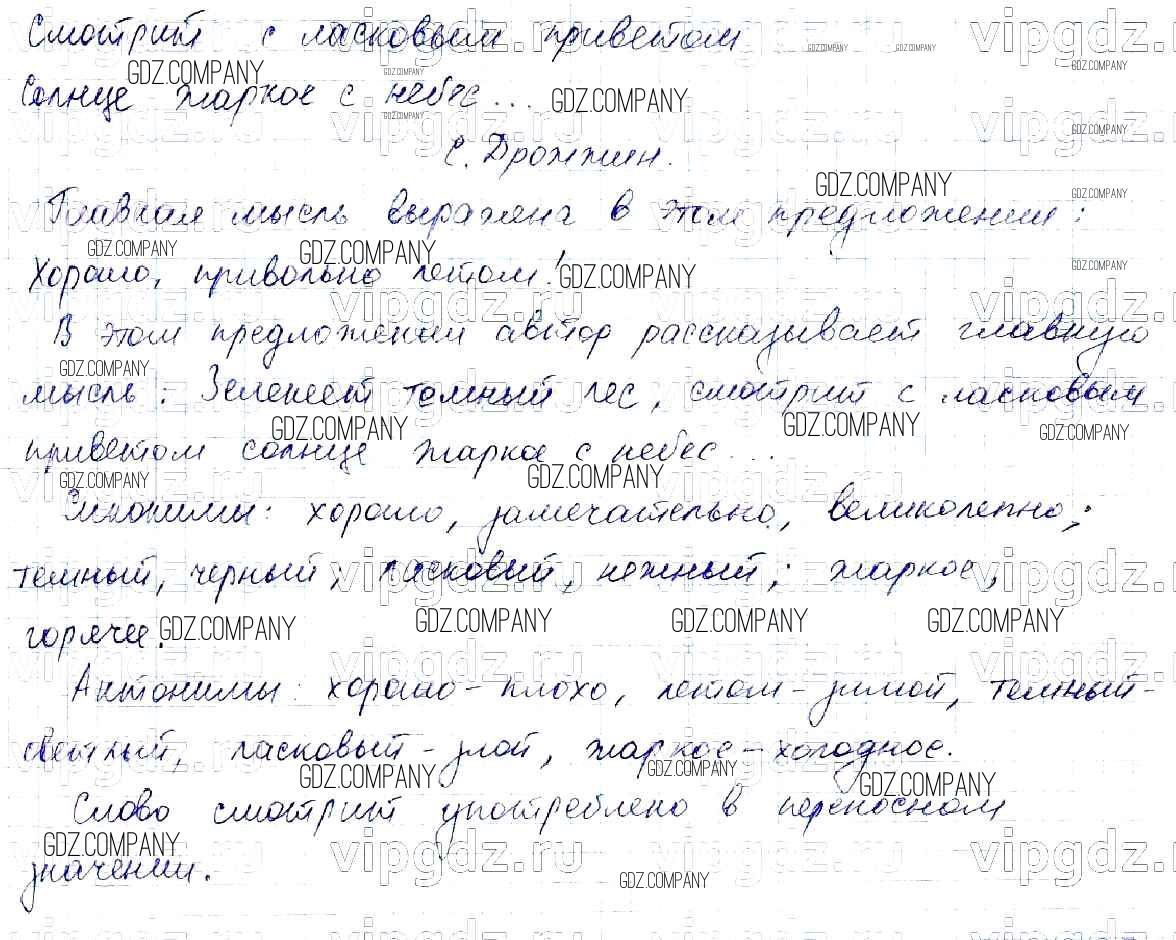 Смотрит с ласковым приветом
Солнце жаркое с небес...
С. Дрожжин.
Главная мысль выражена в этом предложении:
Хорошо, привольно летом!
В этом предложении автор рассказывает главную
мысль: Зеленеет темный лес, смотрит с ласковым
приветом солнце жаркое с небес...
Синонимы: хорошо, замечательно, великолепно;
темный, черный; ласковый, нежный; жаркое,
горячее.
Антонимы: хорошо - плохо, летом - зимой, темный -
светлый, ласковый - злой, жаркое - холодное.
Слово смотрит употреблено в переносном
значении.